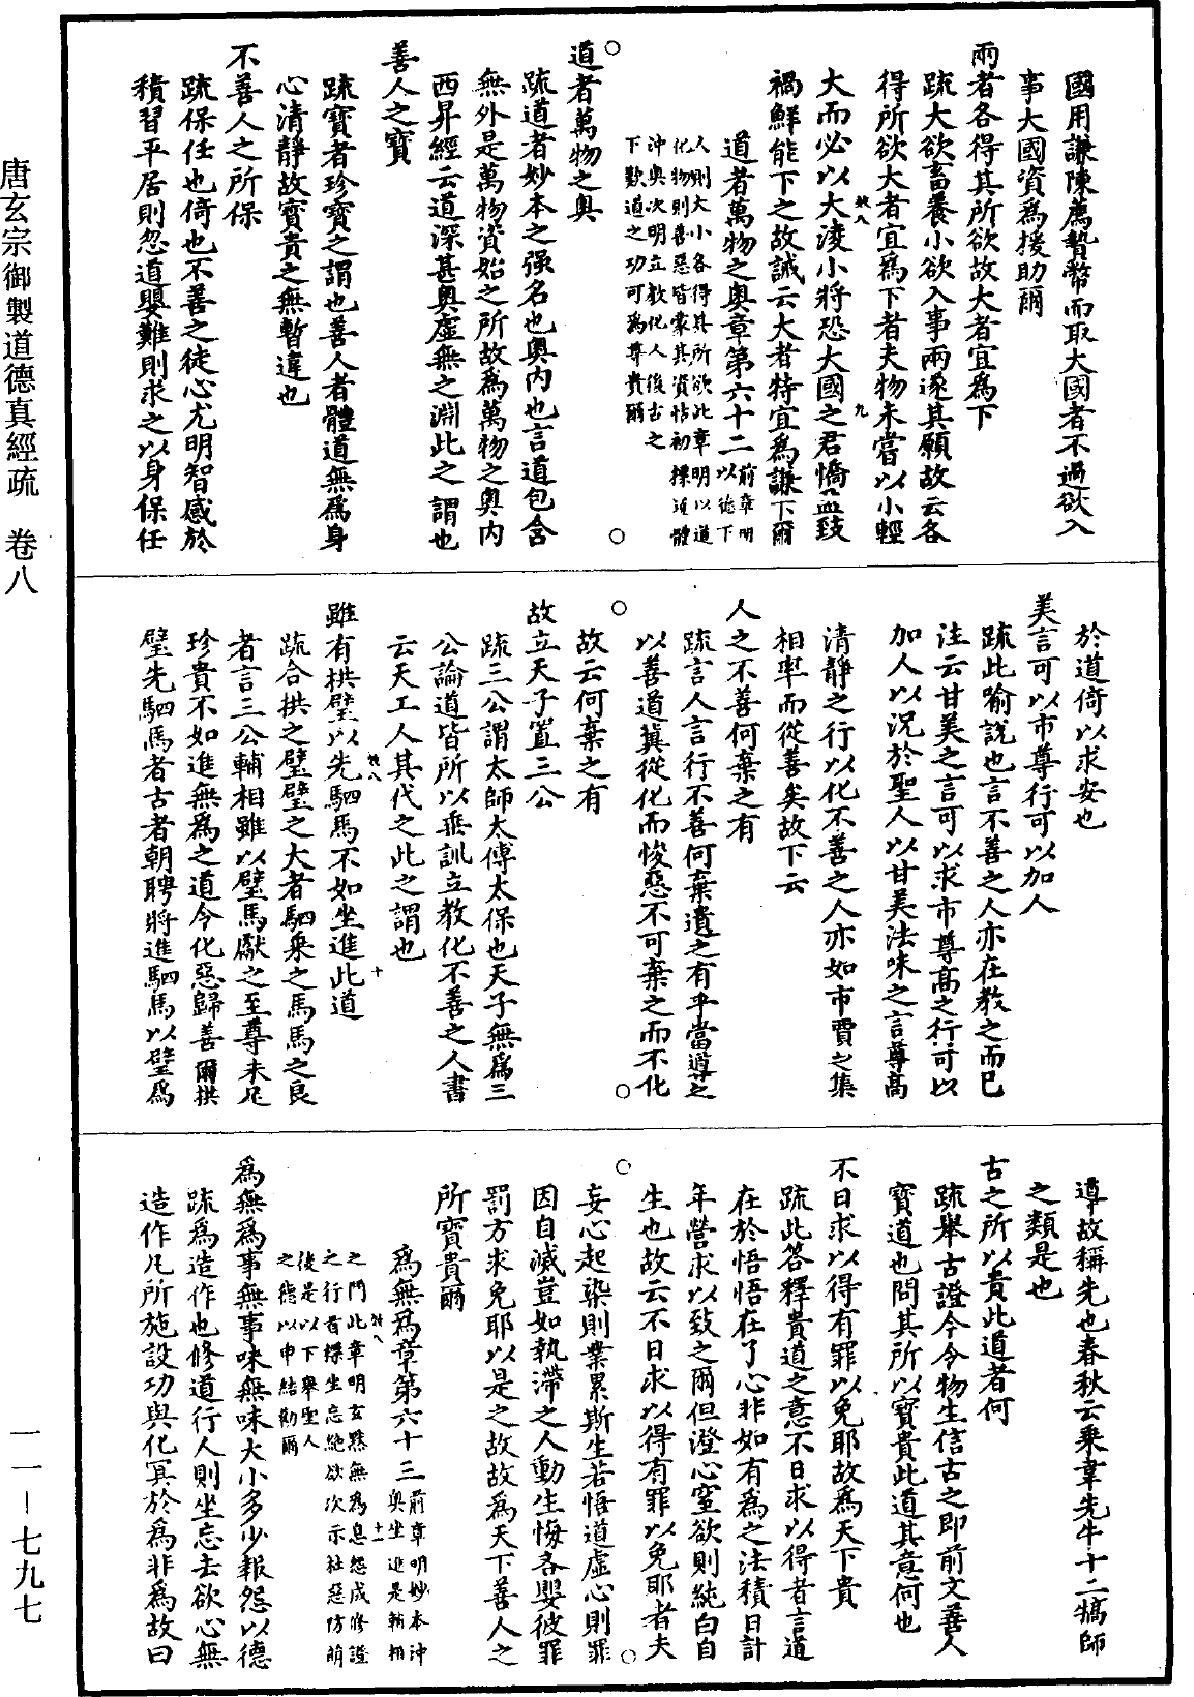 國用謙陳薦贄幣而取大國者不過欲入
事大國資爲援助爾
兩者各得其所欲故大者宜爲下
疏大欲畜養小欲入事兩遂其願故云各
得所欲大者宜爲下者夫物未嘗以小輕
大而必以大淩小將恐大國之君憍盈致
禍鮮能下之故誡云大者特宜爲謙下爾
道者萬物之奧章第六十二
前章明以德下
人則大小各得其所欲此章明以道
化物則善惡皆蒙其資怙初標道體
沖奧次明立教化人後古之
下歎道之功可爲尊貴爾
道者萬物之奧
疏道者妙本之强名也奧内也言道包含
無外是萬物資始之所故爲萬物之奧内
西昇經云道深甚奧虛無之淵此之謂也
善人之寶
疏寶者珍寶之謂也善人者體道無爲身
心清靜故寶貴之無暫違也
不善人之所保
疏保任也倚也不善之徒心尤明智惑於
積習平居則忽道嬰難則求之以身保任
於道倚以求安也
美言可以市尊行可以加人
疏此喻說也言不善之人亦在教之而已
注云甘美之言可以求市尊高之行可以
加人以況於聖人以甘美法味之言尊高
清靜之行以化不善之人亦如市賈之集
相率而從善矣故下云
人之不善何棄之有
疏言人言行不善何棄遺之有乎當導之
以善道冀從化而悛惡不可棄之而不化
故云何棄之有
故立天子置三公
疏三公謂太師太傅太保也天子無爲三
公論道皆所以垂訓立教化不善之人書
云天工人其代之此之謂也
雖有拱璧以先駟馬不如坐進此道
疏合拱之璧璧之大者駟乘之馬馬之良
者言三公輔相雖以璧馬獻之至尊未足
珍貴不如進無爲之道令化惡歸善爾拱
璧先駟馬者古者朝聘將進駟馬以璧爲
導故稱先也春秋云乘韋先牛十二犒師
之類是也
古之所以貴此道者何
疏舉古證今令物生信古之即前文善人
寶道也問其所以寶貴此道其意何也
不日求以得有罪以免耶故爲天下貴
疏此答釋貴道之意不日求以得者言道
在於悟悟在了心非如有爲之法積日計
年營求以致之爾但澄心窒欲則純白自
生也故云不日求以得有罪以免耶者夫
妄心起染則業累斯生若悟道虛心則罪
因自滅豈如執滯之人動生悔吝嬰彼罪
罰方求免耶以是之故故爲天下善人之
所寶貴爾
爲無爲章第六十三
前章明妙本沖
奧坐進是輔相
之門此章明玄默無爲息怨成修證
之行首標坐忘絶欲次示杜惡防萌
後是以下舉聖人
之德以申結勸爾
爲無爲事無事味無味大小多少報怨以德
疏爲造作也修道行人則坐忘去欲心無
造作凡所施設功與化冥於爲非爲故曰
唐玄宗御製道德真經疏　卷八
一一—七九七